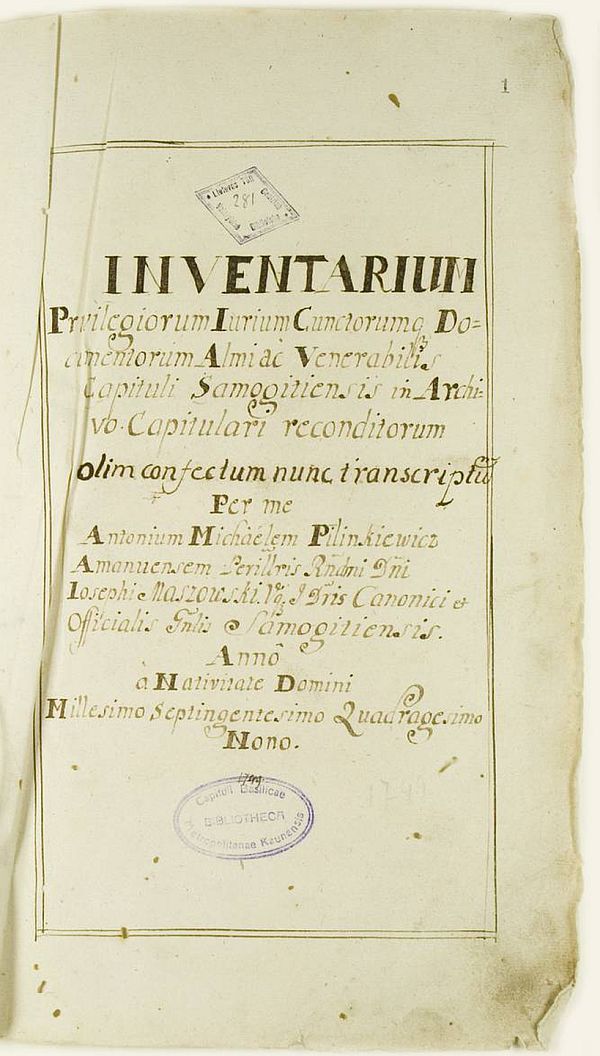 1
281
INVENTARIUM
Privilegiorum Iurium Cunctorumq Do=
cumentorum Almi ac Venerabilis
Capituli Samogitiensis in Archi=
vo Capitulari reconditorum
olim confectum nunc transcriptũ
Per me
Antonium Michaëlem Pilinkiewicz
Amanuensem Perillris Rñdni Dñi
Iosephi Maszowski Canonici et
Officialis Gñlis Samogitiensis.
Annô
à Nativitate Domini
Millesimo Septingentesimo Quadragesimo
Nono.
1749
Capituli Basilicae
BIBLIOTHECA
Metropolitanae Kaunensis